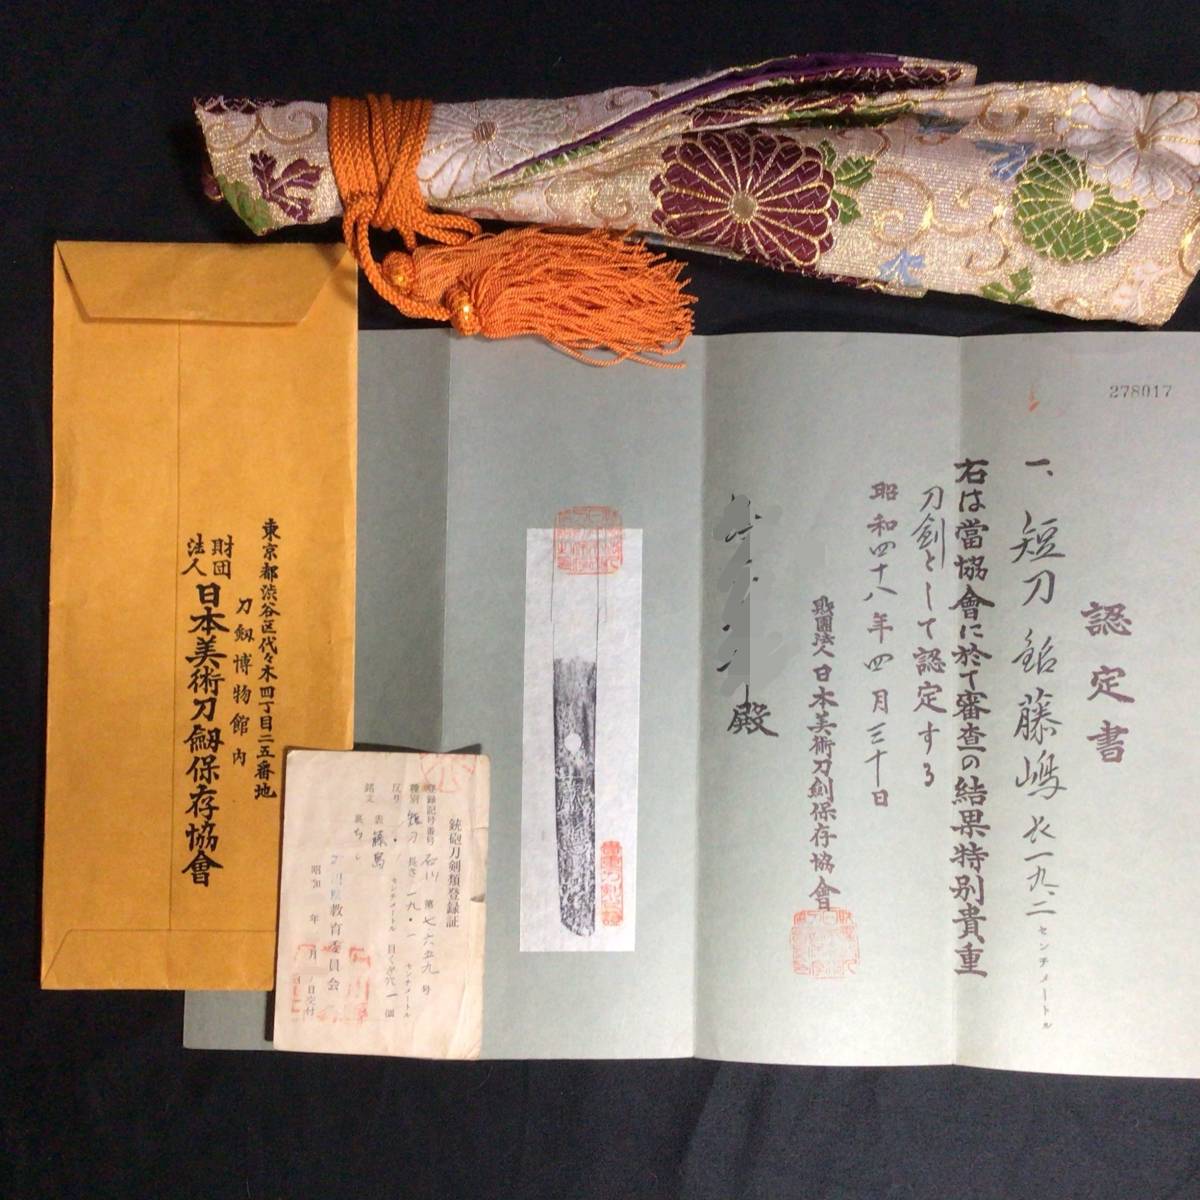 278017
認定書
一、短刀 銘 藤嶋 長一九、二センチメートル
右は當協會に於て審査の結果特別貴重
刀劍として認定する
昭和四十八年四月三十日
財團法人日本美術刀劍保存協會
殿
東京都渋谷区代々木四丁目二五番地
刀劔博物館内
財団法人 日本美術刀劔保存協會
銃砲刀剣類登録証
登録記号番号 石川 第七六五九号
種別 短刀 長さ 一九・一 センチメートル
反り センチメートル 目くぎ穴 一個
銘文 表 藤嶋
裏
昭和 年 月 日交付
教育委員会